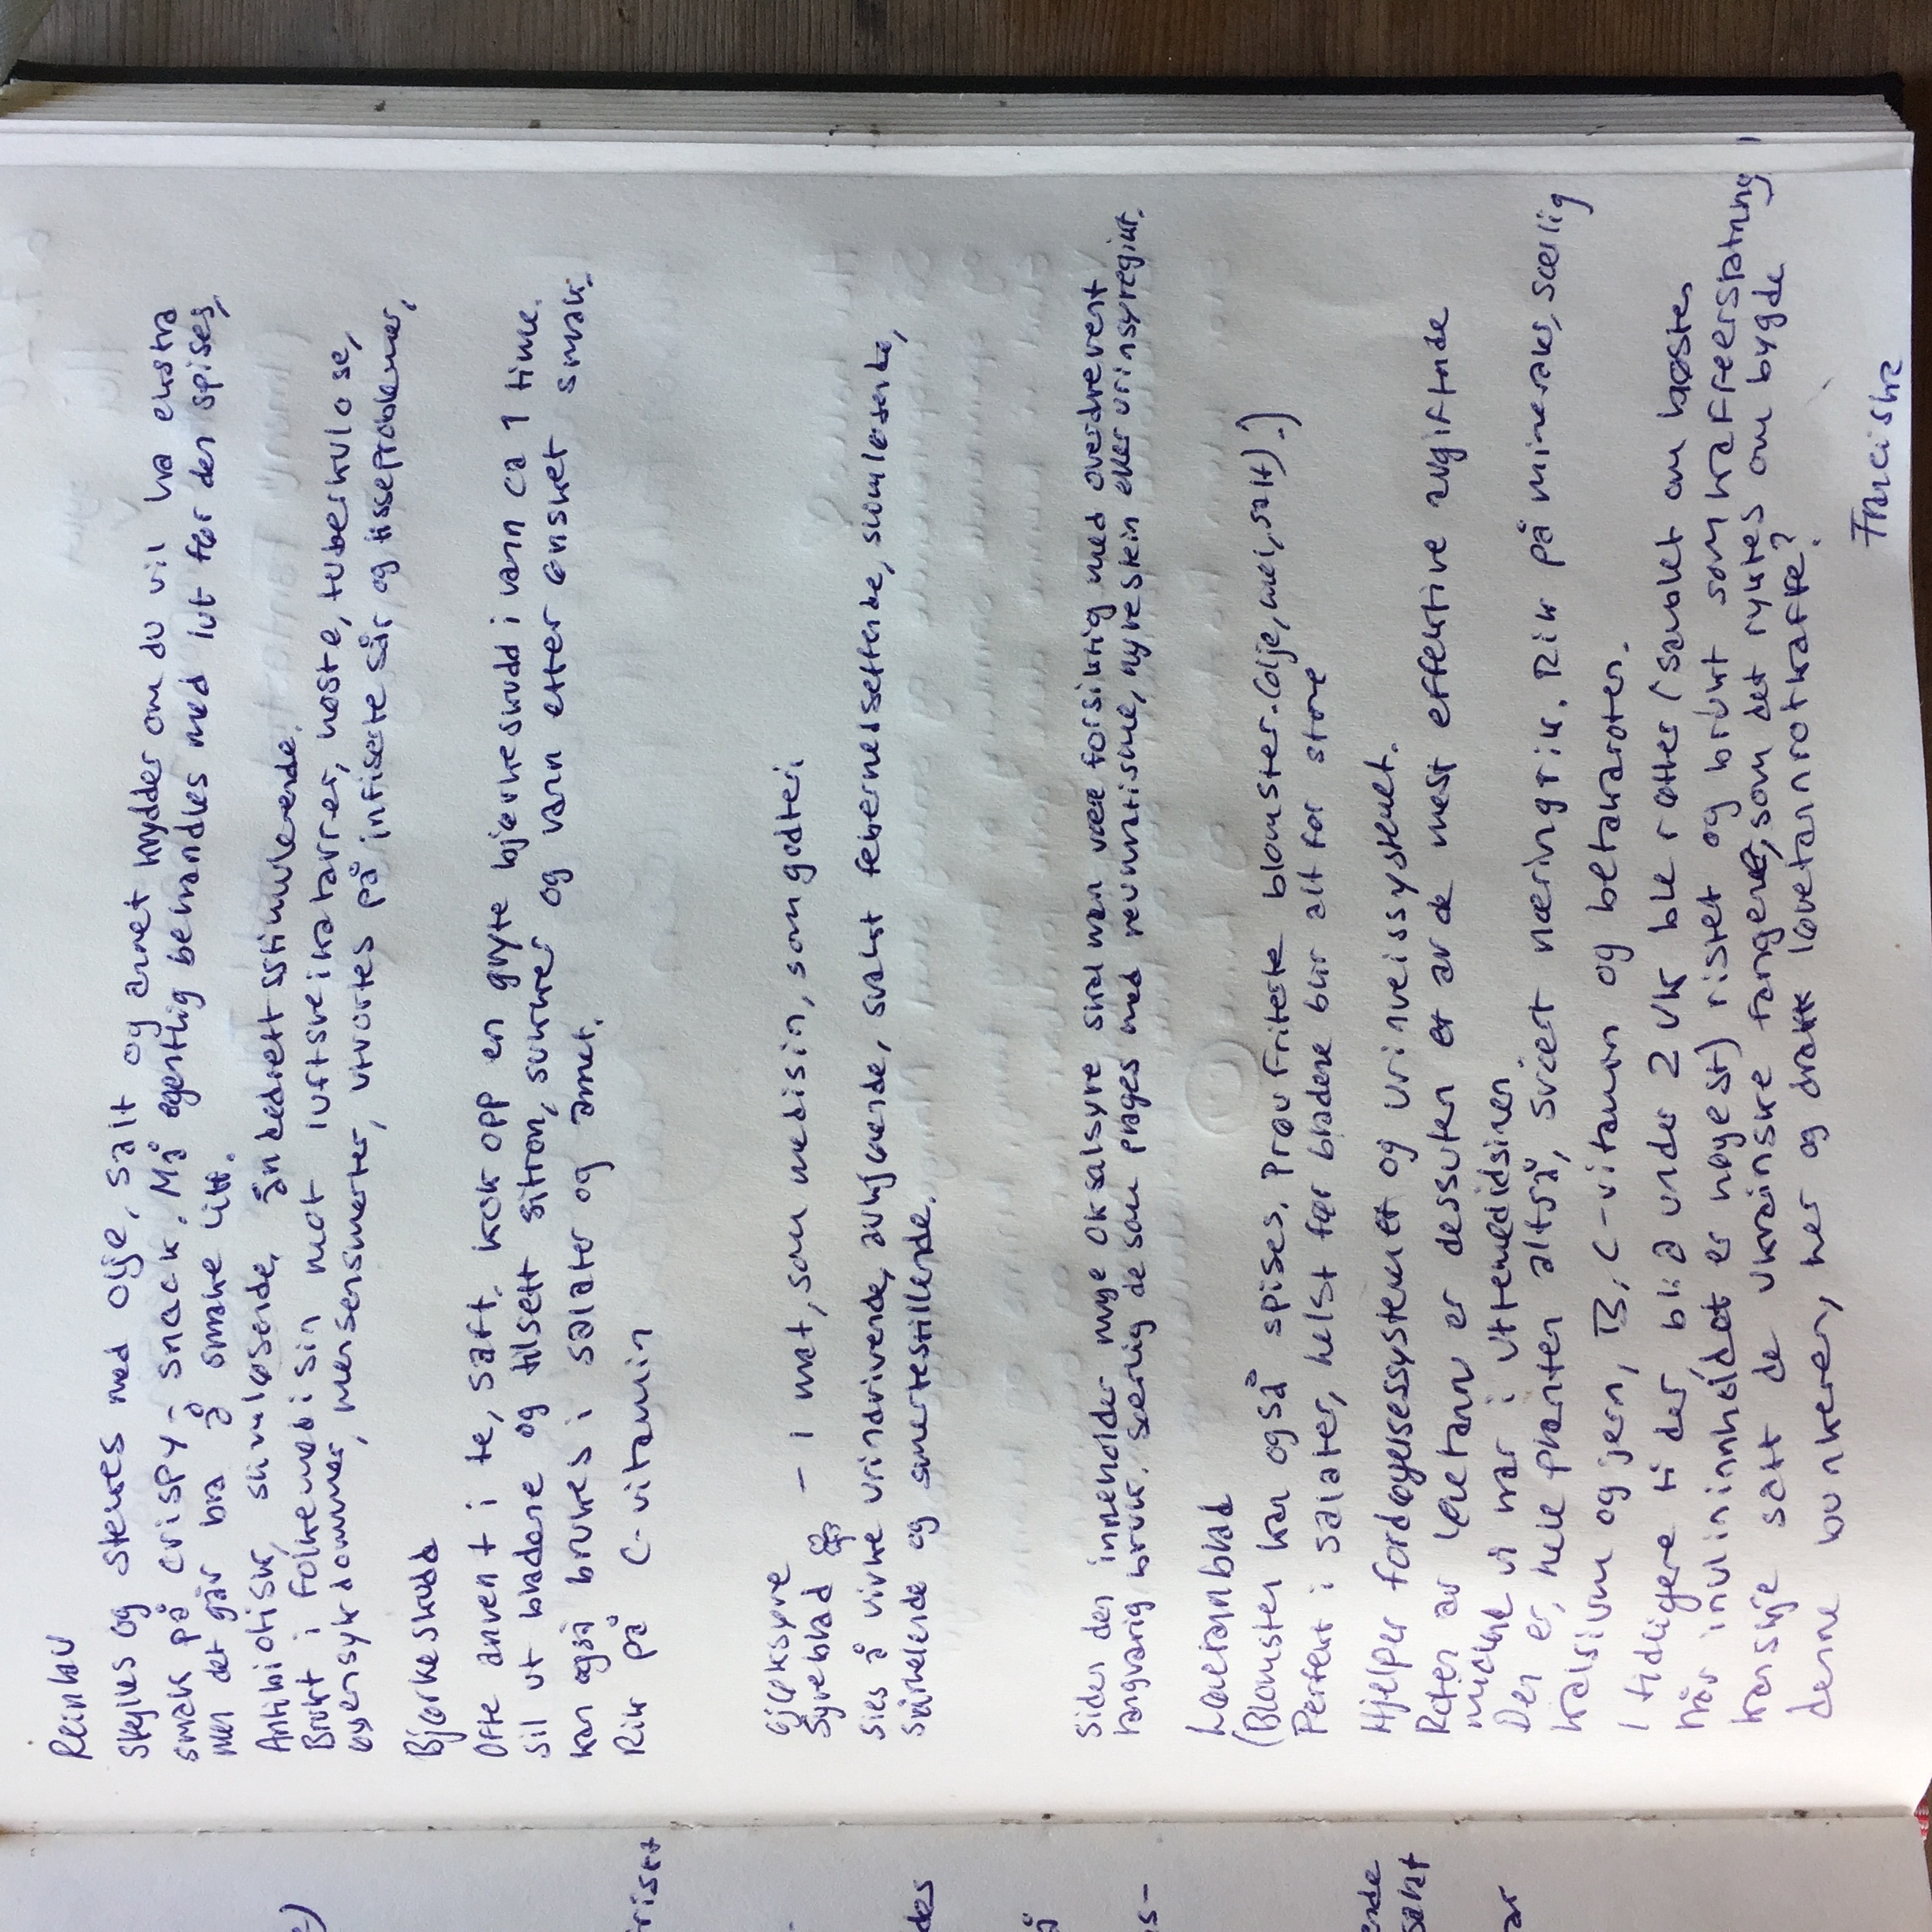 Reinlav
Skylles og stekes med olje, salt og annet krydder om du vil ha ekstra
smak på crispy-snack. Må egentlig behandles med lut før den spises,
men det går bra å smake litt.
Antibiotisk, slimløsende, åndedrettsstimulerende.
Brukt i folkemedisin mot luftveikatarrer, hoste, tuberkulose,
øyensykdommer, mensensmerter, utvortes på infiserte sår og tisseproblemer,
Bjørkeskudd
Ofte anvent i te, saft. Kok opp en gryte bjørkeskudd i vann ca 1 time.
Sil ut bladene og tilsett sitron, sukker og vann etter ønsket smak.
Kan også brukes i salater og annet.
Rik på C-vitamin
Gjøksyre
Syreblad - i mat, som medisin, som godteri
Sies å virke urindrivende, avkjølende, svakt febernedsettende, slimløsende,
svirkelende og smertestillende.
Siden den inneholder mye oksalsyre skal man være forsiktig med overdrevent
langvarig bruk. Særlig de som plages med revmatisme, nyrestein eller urinsyregikt.
Løvetannblad
(Blomsten kan også spises. Prøv friterte blomster. (olje, mel, salt).)
Perfekt i salater, helst før bladene blir alt for store
Hjelper fordøyelsessystemet og urinveissystemet.
Roten av løvetann er dessuten et av de mest effektive avgiftnde
midlene vi har i uttemedidsinen
Den er, hele planten altså, svært næringrik. Rik på mineraler, særlig
kalsium og jern, B, C-vitamin og betakaroten.
I tidligere tider bl.a under 2VK ble røtter (sanket om høsten
når inulininnholdet er høyest) ristet og brukt som kaffeerstatning,
Kanskje satt de ukrainske fangene, som det ryktes om bygde
denne bunkeren, her og drakk løvetannrotkaffe?
Franciska
friste
des
å
s-
ende
ar